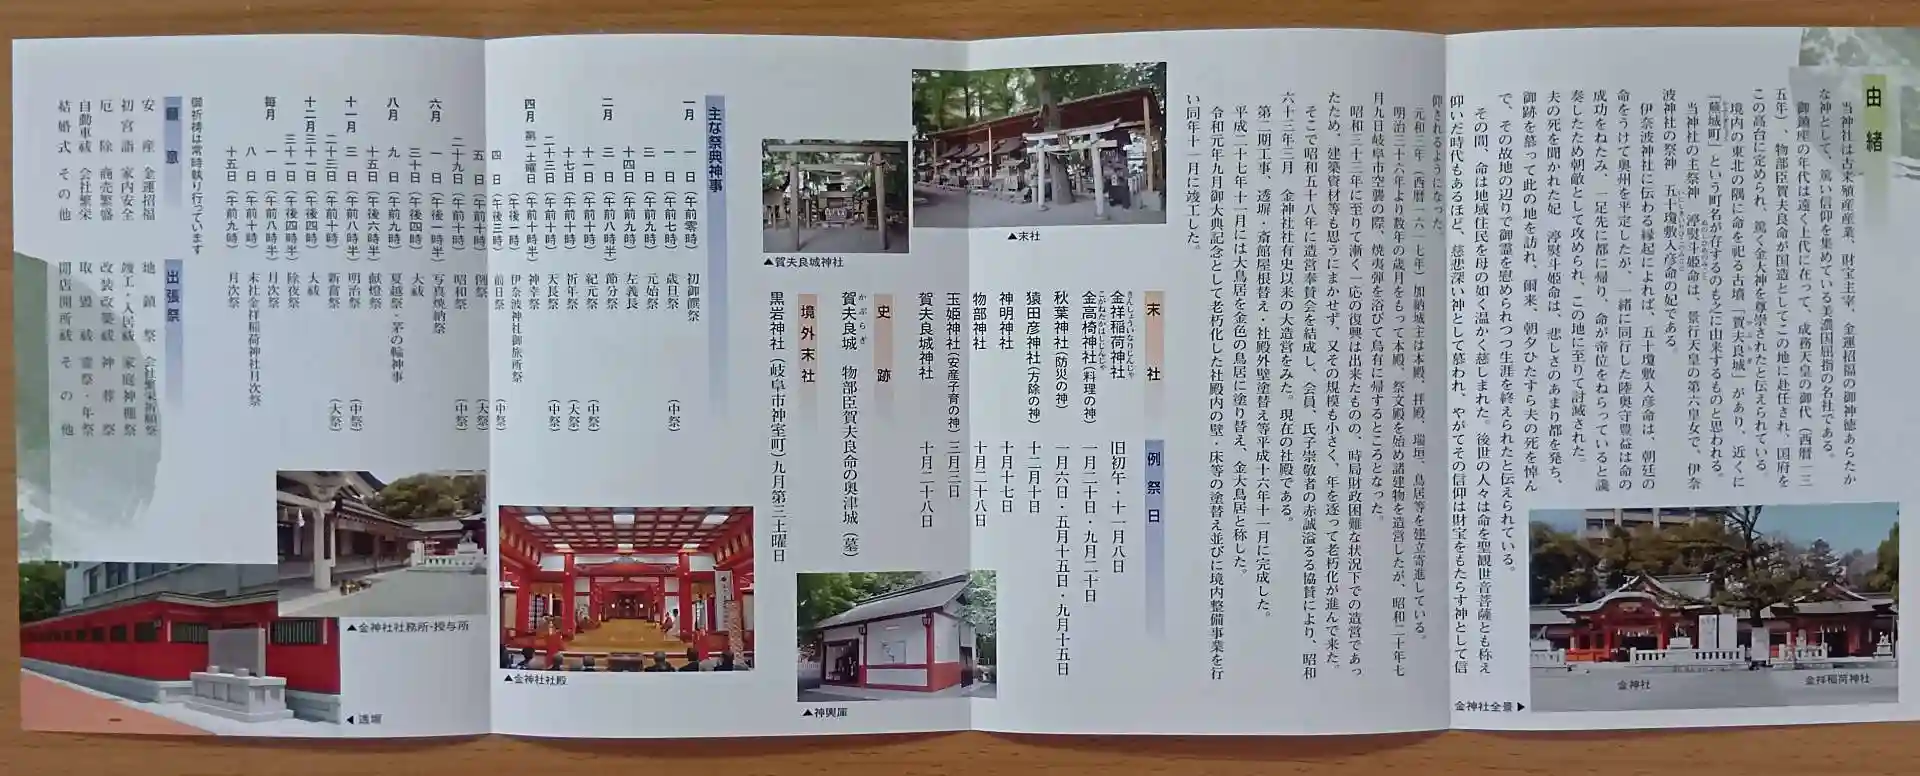 由緒
当神社は古来殖産産業、財宝主宰、金運招福の御神徳あらたか
な神として、篤い信仰を集めている美濃国屈指の名社である。
御鎮座の年代は遠く上代に在って、成務天皇の御代(西暦一三
五年)、物部臣賀夫良命が国造としてこの地に赴任され、国府を
この高台に定められ、篤く金大神を尊崇されたと伝えられている。
境内の東北の隅に命を祀る古墳「賀夫良城」があり、近くに
「蕪城町」という町名が存するのも之に由来するものと思われる。
当神社の主祭神 渟熨斗姫命は、景行天皇の第六皇女で、伊奈
波神社の祭神 五十瓊敷入彦命の妃である。
伊奈波神社に伝わる縁起によれば、五十瓊敷入彦命は、朝廷の
命をうけて奥州を平定したが、一緒に同行した陸奥守豊益は命の
成功をねたみ、一足先に都に帰り、命が帝位をねらっていると讒
奏したため朝敵として攻められ、この地に至りて討滅された。
夫の死を聞かれた妃 渟熨斗姫命は、悲しさのあまり都を発ち、
御跡を慕って此の地を訪れ、爾来、朝夕ひたすら夫の死を悼ん
で、その故地の辺りで御霊を慰められつつ生涯を終えられたと伝えられている。
その間、命は地域住民を母の如く温かく慈しまれた。後世の人々は命を聖観世音菩薩とも称え
仰いだ時代もあるほど、慈悲深い神として慕われ、やがてその信仰は財宝をもたらす神として信
仰されるようになった。
元和三年(西暦一六一七年)加納城主は本殿、拝殿、瑞垣、鳥居等を建立寄進している。
明治三十六年より数年の歳月をもって本殿、祭文殿を始め諸建物を造営したが、昭和二十年七
月九日岐阜市空襲の際、焼夷弾を浴びて烏有に帰するところとなった。
昭和三十三年に至りて漸く一応の復興は出来たものの、時局財政困難な状況下での造営であっ
たため、建築資材等も思うにまかせず、又その規模も小さく、年を逐って老朽化が進んで来た。
そこで昭和五十八年に造営奉賛会を結成し、会員、氏子崇敬者の赤誠溢るる協賛により、昭和
六十三年三月 金神社社有史以来の大造営をみた。現在の社殿である。
第二期工事、透塀・斎館屋根替え・社殿外壁塗替え等平成十六年十一月に完成した。
平成二十七年十一月には大鳥居を金色の鳥居に塗り替え、金大鳥居と称した。
令和元年九月御大典記念として老朽化した社殿内の壁・床等の塗替え並びに境内整備事業を行
い同年十一月に竣工した。
金神社
金祥稲荷神社
金神社全景▶
▲末社
▲賀夫良城神社
末社
例祭日
きんしょういなりじんじゃ
金祥稲荷神社 旧初午・十一月八日
こがねたかはしじんじゃ
金高椅神社(料理の神) 一月二十日・九月二十日
秋葉神社(防災の神) 一月六日・五月十五日・九月十五日
猿田彦神社(方除の神) 十二月十日
神明神社 十月十七日
物部神社 十月二十八日
玉姫神社(安産子育の神) 三月三日
賀夫良城神社 十月二十八日
史跡
かぶらぎ
賀夫良城 物部臣賀夫良命の奥津城(墓)
境外末社
黒岩神社(岐阜市神室町)九月第三土曜日
▲神輿庫
主な祭典神事
一月 一日(午前零時) 初御饌祭
一日(午前七時) 歳旦祭(中祭)
三日(午前十時) 元始祭
二月 三日(午前十時) 節分祭
十四日(午前九時) 左義長
十一日(午前十時) 紀元祭(中祭)
十七日(午前十時) 祈年祭(大祭)
二十三日(午前十時) 天長祭(中祭)
四月 第一土曜日(午前十時半) 神幸祭
(午後一時) 伊奈波神社御旅所祭
四日(午後三時) 前日祭(中祭)
五日(午前十時) 例祭(大祭)
二十九日(午前十時) 昭和祭(中祭)
六月 一日(午後一時半) 写真焼納祭
三十日(午後四時) 大祓
八月 九日(午前九時) 夏越祭・茅の輪神事
十五日(午後六時半) 献燈祭
十一月 三日(午前八時半) 明治祭(中祭)
二十三日(午前十時) 新嘗祭(大祭)
十二月三十一日(午後四時) 大祓
三十一日(午後四時半) 除夜祭
毎月 一日(午前八時半) 月次祭
八日(午前十時) 末社金祥稲荷神社月次祭
十五日(午前九時) 月次祭
御祈祷は常時執り行っています
▲金神社社殿
▲金神社社務所・授与所
◀透塀
願意
安産 金運招福
初宮詣 家内安全
厄除 商売繁盛
自動車祓 会社繁栄
結婚式 その他
出張祭
地鎮祭 会社繁栄祈願祭
竣工・入居祓 家庭神棚祭
改装改築祓 神葬祭
取毀祓 霊祭・年祭
開店開所祓 その他